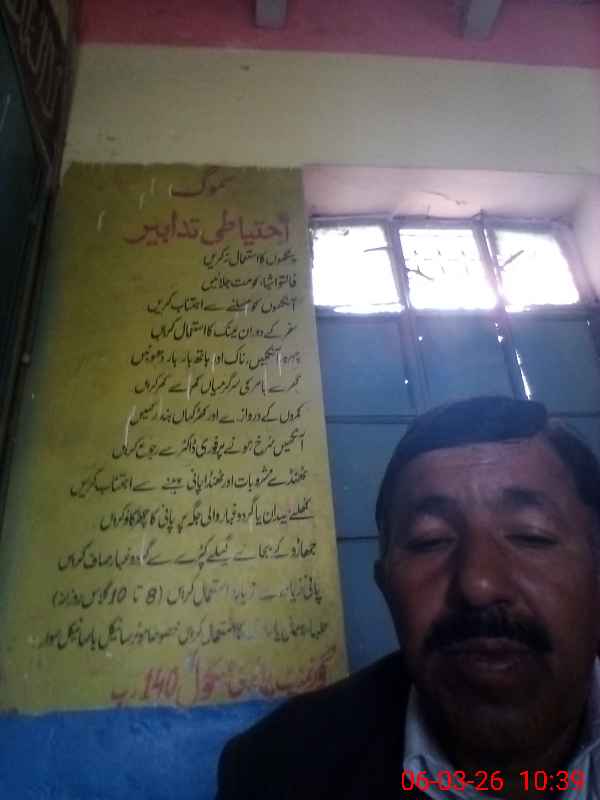 سموگ
احتیاطی تدابیر
پنکھوں کا استعمال نہ کریں
فالتو اشیاء کو مت جلائیں
آنکھوں کو مسلنے سے اجتناب کریں
سفر کے دوران عینک کا استعمال کریں
چہرہ آنکھیں، ناک اور ہاتھ بار بار دھوئیں
گھر سے باہر کی سرگرمیاں کم سے کم کریں
کمروں کے دروازے اور کھڑکیاں بند رکھیں
آنکھیں سرخ ہونے پر فوری ڈاکٹر سے رجوع کریں
ٹھنڈے مشروبات اور ٹھنڈا پانی پینے سے اجتناب کریں
کھلے میدان یا گردوغبار والی جگہ پر پانی کا چھڑکاؤ کریں
جھاڑو کے بجائے گیلے کپڑے سے گردوغبار صاف کریں
پانی زیادہ سے زیادہ استعمال کریں (8 تا 10 گلاس روزانہ)
کا استعمال کریں خصوصاً موٹر سائیکل یا سائیکل سوار
گورنمنٹ سکول 140
06-03-26 10:39